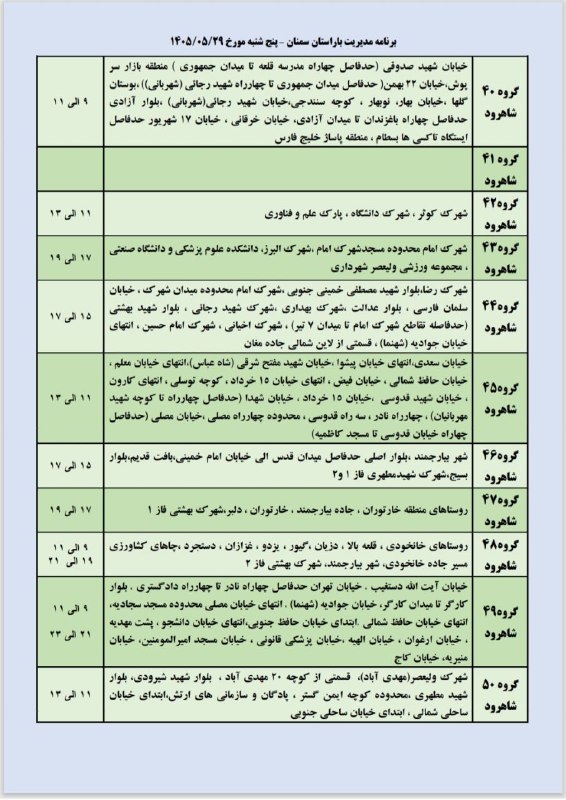 برنامه مدیریت بار استان سمنان - پنج شنبه مورخ ۱۴۰۵/۰۵/۲۹
گروه ۴۰ شاهرود
خیابان شهید صدوقی (حدفاصل چهاراه مدرسه قلعه تا میدان جمهوری ) منطقه بازار سر
پوش،خیابان ۲۲ بهمن( حدفاصل میدان جمهوری تا چهارراه شهید رجائی (شهربانی)) ،بوستان
گلها ،خیابان بهار، نوبهار ، کوچه سنندجی،خیابان شهید رجائی(شهربانی) ،بلوار آزادی
حدفاصل چهاراه باغزندان تا میدان آزادی، خیابان خرقانی ، خیابان ۱۷ شهریور حدفاصل
ایستگاه تاکسی ها بسطام ، منطقه پاساژ خلیج فارس
۹ الی ۱۱
گروه ۴۱
شاهرود
گروه۴۲
شاهرود
شهرک کوثر ، شهرک دانشگاه ، پارک علم و فناوری
۱۱ الی ۱۳
گروه۴۳
شاهرود
شهرک امام محدوده مسجدشهرک امام ،شهرک البرز، دانشکده علوم پزشکی و دانشگاه صنعتی
، مجموعه ورزشی ولیعصر شهرداری
۱۷ الی ۱۹
گروه۴۴
شاهرود
شهرک رضا،بلوار شهید مصطفی خمینی جنوبی،شهرک امام محدوده میدان شهرک ، خیابان
سلمان فارسی ، بلوار عدالت ،شهرک بهداری ،شهرک شهید رجائی ، بلوار شهید بهشتی
(حدفاصله تقاطع شهرک امام تا میدان ۷ تیر) ، شهرک اخیانی ، شهرک امام حسین ، انتهای
خیابان جوادیه (شهنما) ، قسمتی از لاین شمالی جاده مغان
۱۵ الی ۱۷
گروه۴۵
شاهرود
خیابان سعدی،انتهای خیابان پیشوا ،خیابان شهید مفتح شرقی (شاه عباس)،انتهای خیابان معلم ،
خیابان حافظ شمالی ، خیابان فیض ، انتهای خیابان ۱۵ خرداد ، کوچه توسلی ، انتهای کارون
، خیابان شهید قدوسی ،خیابان ۱۵ خرداد ، خیابان شهدا (حدفاصل چهارراه تا کوچه شهید
مهربانیان) ، چهارراه نادر ، سه راه قدوسی ، محدوده چهارراه مصلی ،خیابان مصلی (حدفاصل
چهاراه خیابان قدوسی تا مسجد کاظمیه)
۱۱ الی ۱۳
گروه۴۶
شاهرود
شهر بیارجمند ،بلوار اصلی حدفاصل میدان قدس الی خیابان امام خمینی،بافت قدیم،بلوار
بسیج،شهرک شهیدمطهری فاز ۱ و۲
۱۵ الی ۱۷
گروه۴۷
شاهرود
روستاهای منطقه خارتوران ، جاده بیارجمند ، خارتوران ، دلبر،شهرک بهشتی فاز ۱
۱۷ الی ۱۹
گروه۴۸
شاهرود
روستاهای خانخودی ، قلعه بالا ، دزیان ،گیور ، یزدو ، غزازان ، دستجرد ،چاهای کشاورزی
مسیر جاده خانخودی، شهر بیارجمند، شهرک بهشتی فاز ۲
۹ الی ۱۱
۱۹ الی ۲۱
گروه۴۹
شاهرود
خیابان آیت الله دستغیب . خیابان تهران حدفاصل چهاراه نادر تا چهارراه دادگستری . بلوار
کارگر تا میدان کارگر، خیابان جوادیه (شهنما) . انتهای خیابان مصلی محدوده مسجد سجادیه،
انتهای خیابان حافظ شمالی .ابتدای خیابان حافظ جنوبی،انتهای خیابان دانشجو ، پشت مهدیه
، خیابان ارغوان ، خیابان الهیه ،خیابان پزشکی قانونی ، خیابان مسجد امیرالمومنین، خیابان
منیریه، خیابان کاج
۹ الی ۱۱
۲۱ الی ۲۳
گروه ۵۰
شاهرود
شهرک ولیعصر(مهدی آباد)، قسمتی از کوچه ۲۰ مهدی آباد ، بلوار شهید شیرودی، بلوار
شهید مطهری ،محدوده کوچه ایمن گستر ، پادگان و سازمانی های ارتش،ابتدای خیابان
ساحلی شمالی ، ابتدای خیابان ساحلی جنوبی
۱۱ الی ۱۳